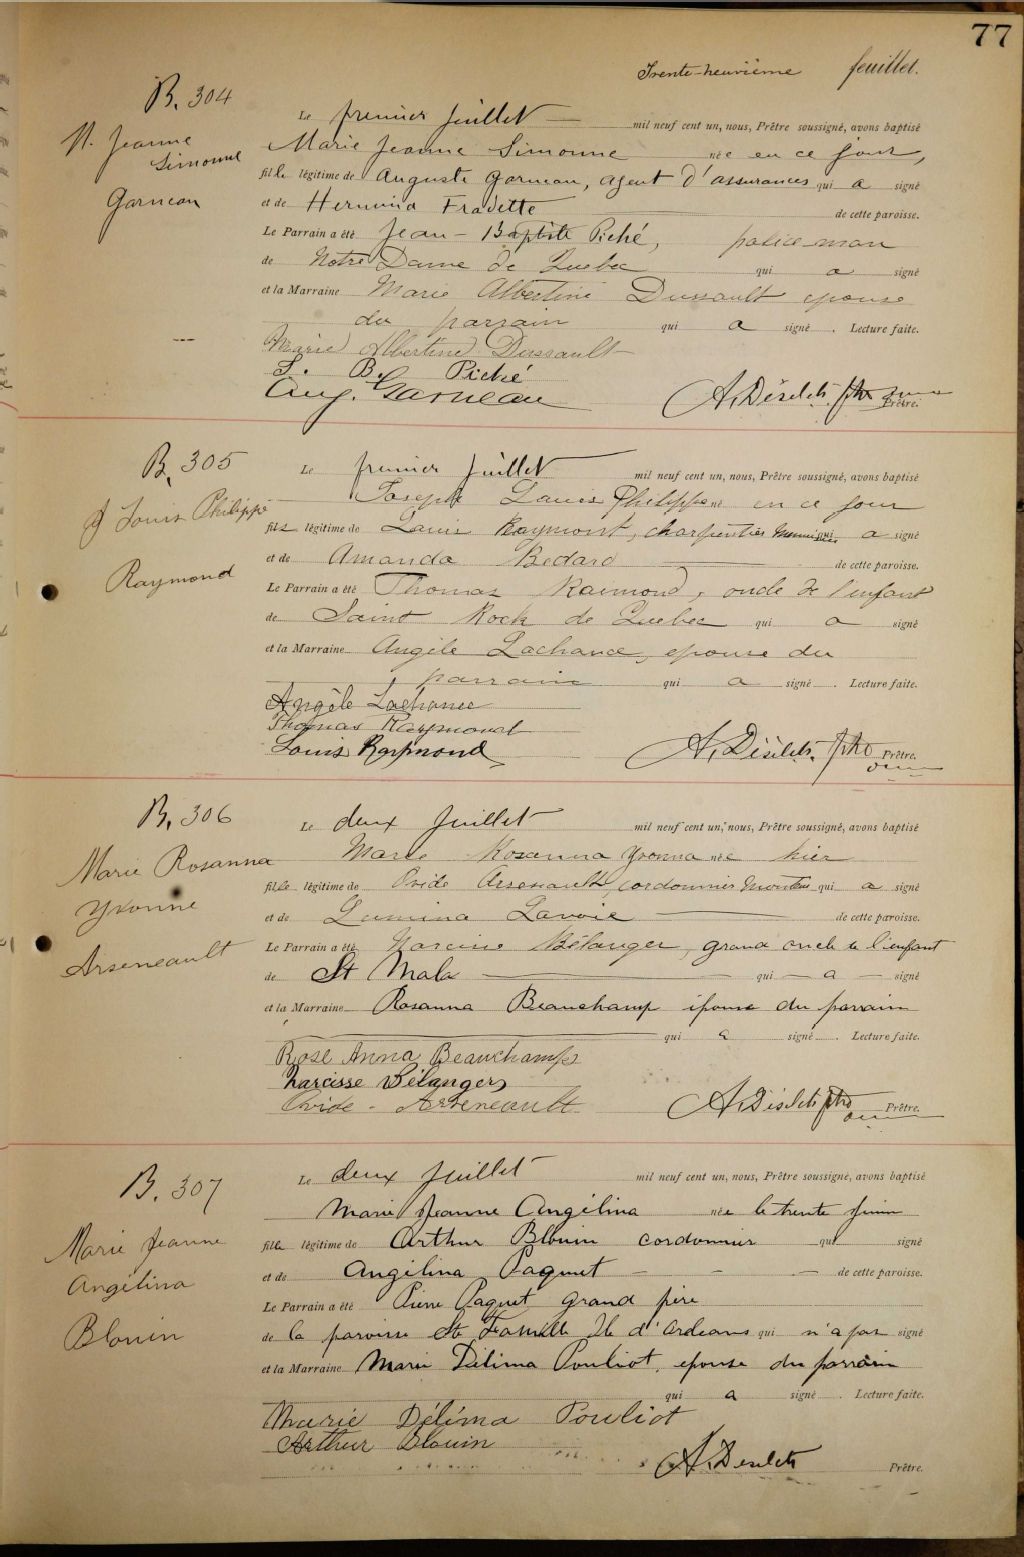 77
Trente-neuvième feuillet.
B. 304
M. Jeanne
Simonne
Garneau
Le premier juillet mil neuf cent un, nous, Prêtre soussigné, avons baptisé
Marie Jeanne Simonne née en ce jour,
fille légitime de Auguste Garneau, agent d'assurances qui a signé
et de Hermina Fradette de cette paroisse.
Le Parrain a été Jean-Baptiste Piché, police-man
de Notre Dame de Quebec qui a signé
et la Marraine Marie Albertine Dussault epouse
du parrain qui a signé. Lecture faite.
Marie Albertine Dussault
J. B. Piché
Aug. Garneau
A. Déselets, ptre Prêtre.
B. 305
J Louis Philippe
Raymond
Le premier juillet mil neuf cent un, nous, Prêtre soussigné, avons baptisé
Joseph Louis Philippe né en ce jour
fils légitime de Louis Raymond, charpentier menuisier qui a signé
et de Amanda Bedard de cette paroisse.
Le Parrain a été Thomas Raimond, oncle de l'enfant
de Saint Roch de Quebec qui a signé
et la Marraine Angèle Lachance, epouse du
parrain qui a signé. Lecture faite.
Angèle Lachance
Thomas Raymond
Louis Raymond
A. Déselets, ptre Prêtre.
B. 306
Marie Rosanna
Yvonne
Arseneault
Le deux juillet mil neuf cent un, nous, Prêtre soussigné, avons baptisé
Marie Rosanna Yvonna née hier
fille légitime de Ovide Arseneault, cordonnier qui a signé
et de Lumina Lavoie de cette paroisse.
Le Parrain a été Narcisse Bélanger, grand oncle de l'enfant
de St Malo qui a signé
et la Marraine Rosanna Beauchamp épouse du parrain
qui a signé. Lecture faite.
Rose Anna Beauchamp
Narcisse Bélanger
Ovide Arseneault
A. Déselets ptre Prêtre.
B. 307
Marie Jeanne
Angélina
Blouin
Le deux juillet mil neuf cent un, nous, Prêtre soussigné, avons baptisé
Marie Jeanne Angélina née le trente juin
fille légitime de Arthur Blouin cordonnier qui signé
et de Angélina Paquet de cette paroisse.
Le Parrain a été Pierre Paquet grand père
de la paroisse Ste Famille Ile d'Orléans qui n'a pas signé
et la Marraine Marie Délima Pouliot, epouse du parrain
qui a signé. Lecture faite.
Marie Délima Pouliot
Arthur Blouin
A. Deselets Prêtre.